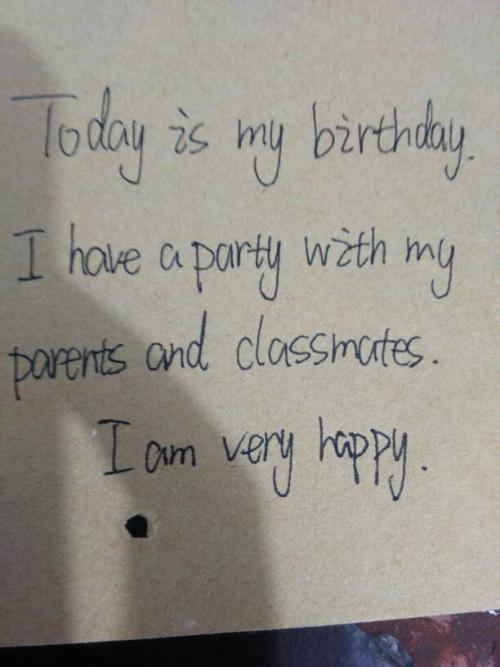 Today is my birthday.
I have a party with my
parents and classmates.
I am very happy.